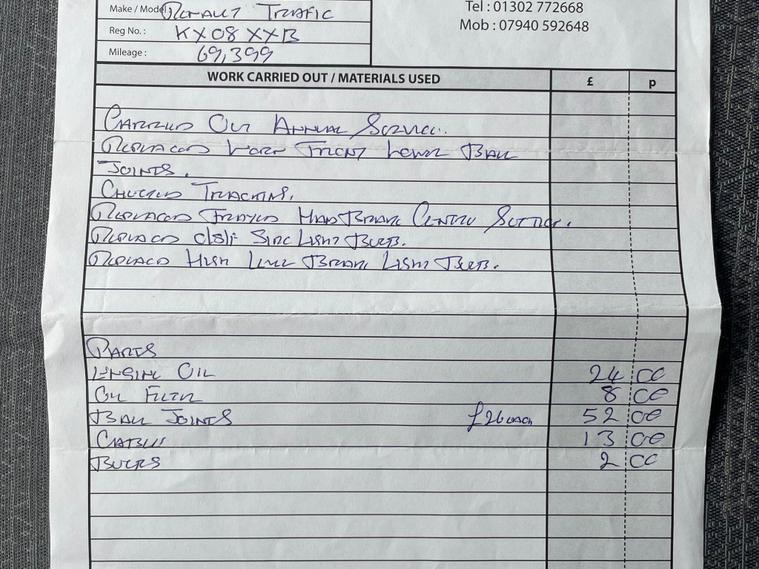 Make / Model Renault Trafic
Tel : 01302 772668
Reg No. : KX08 XXB
Mob : 07940 592648
Mileage : 69,399
WORK CARRIED OUT / MATERIALS USED £ p
Carried Out Annual Service.
Replaced Worn Front Lower Ball
Joints.
Checked Tracking.
Replaced Frayed Hand Brake Centre
Replaced Side Light Bulb.
Replaced High Level Brake Light Bulb.
Parts
Engine Oil 24 00
Oil Filter 8 00
Ball Joints £26 each 52 00
Cable 13 00
Bulbs 2 00